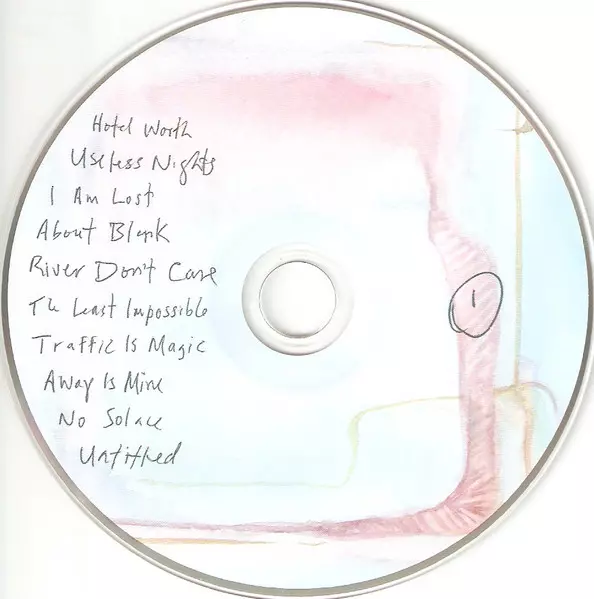 Hotel Worth
Useless Nights
I Am Lost
About Blank
River Don't Care
The Least Impossible
Traffic Is Magic
Away Is Mine
No Solace
Untitled
1